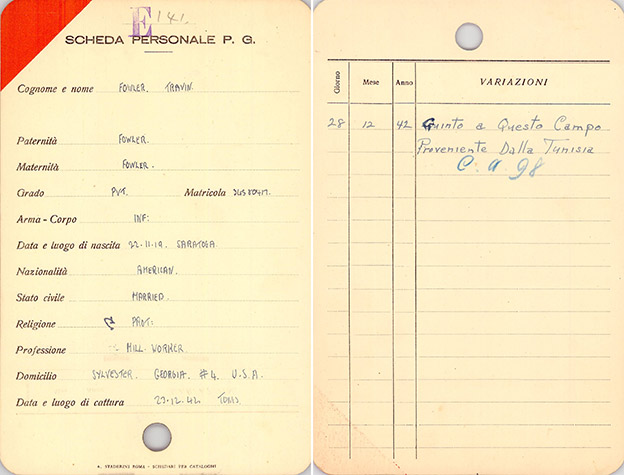 E 141.
SCHEDA PERSONALE P. G.
Cognome e nome FOWLER. TRAVIN.
Paternità FOWLER.
Maternità FOWLER.
Grado PVT. Matricola
Arma - Corpo INF:
Data e luogo di nascita 22.11.19. SARATOGA.
Nazionalità AMERICAN.
Stato civile MARRIED.
Religione PROT:
Professione MILL WORKER.
Domicilio SYLVESTER. GEORGIA. #4. U.S.A.
Data e luogo di cattura 23.12.42. TUNIS.
A. STADERINI ROMA - SCHEDARI PER CATALOGHI
Giorno Mese Anno VARIAZIONI
28 12 42 Giunto a Questo Campo
Proveniente Dalla Tunisia
C. A. 98